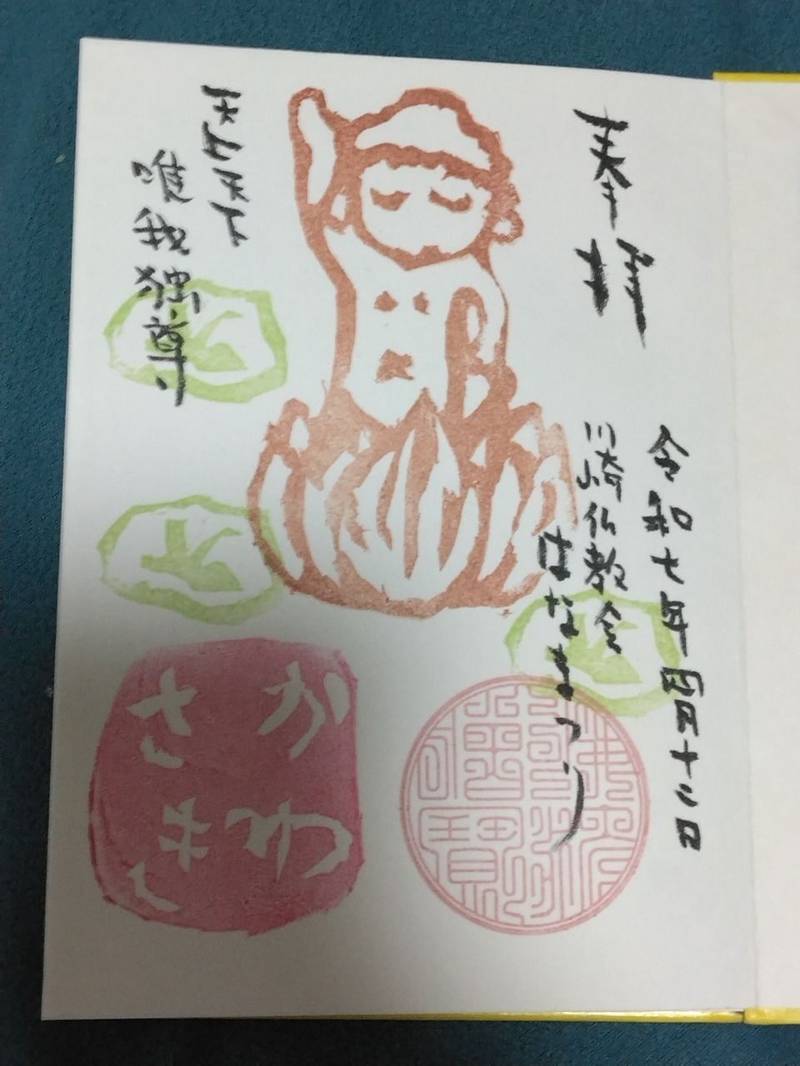 奉拝
令和七年四月十二日
川崎仏教会
はなまつり
天上天下
唯我独尊
かわ
さき